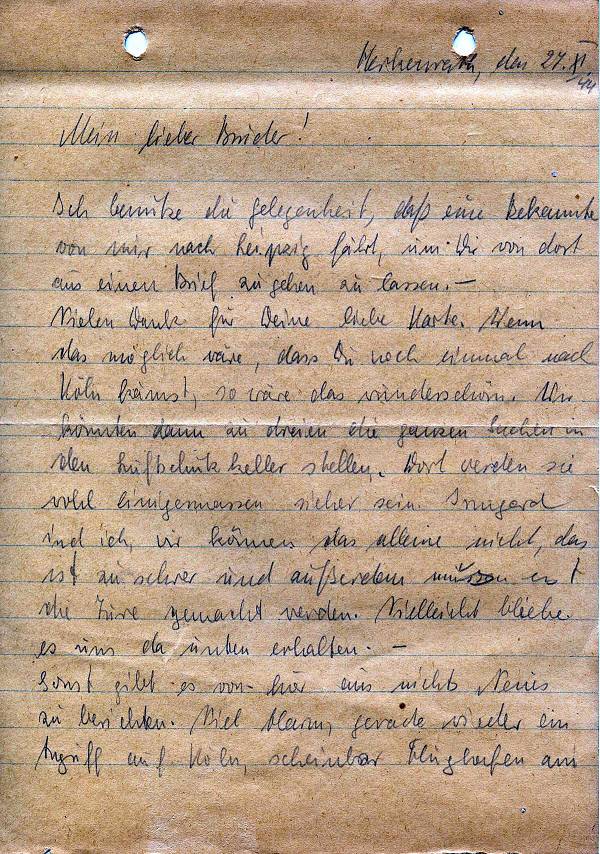 Herkenrath, den 27. XI
44
Mein lieber Bruder!
Ich benutze die gelegenheit, daß eine Bekannte
von mir nach Leipzig fährt, um Dir von dort
aus einen Brief zugehen zu lassen. —
Vielen Dank für Deine liebe Karte. Wenn
das möglich wäre, dass Du noch einmal nach
Köln kämst, so wäre das wunderschön. Wir
könnten dann zu dreien die ganzen Sachen in
den Luftschutzkeller stellen. Dort werden sie
wohl einigermassen sicher sein. Irmgard
und ich, wir können das alleine nicht, das
ist zu schwer und außerdem müssen erst
die Türe gemacht werden. Vielleicht bliebe
es uns da unten erhalten. —
Sonst gibt es von hier aus nichts Neues
zu berichten. Viel Alarm, gerade wieder ein
Angriff auf Köln, scheinbar Flughafen am